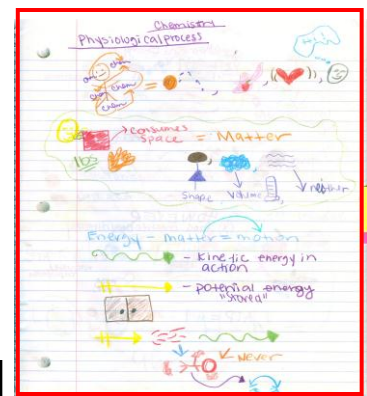 Chemistry
Physiological process
chem
chem
chem
consumes
space = Matter
lbs
Shape
Volume
neither
Energy - matter = motion
- Kinetic energy in
action
- potential energy
"stored"
Never